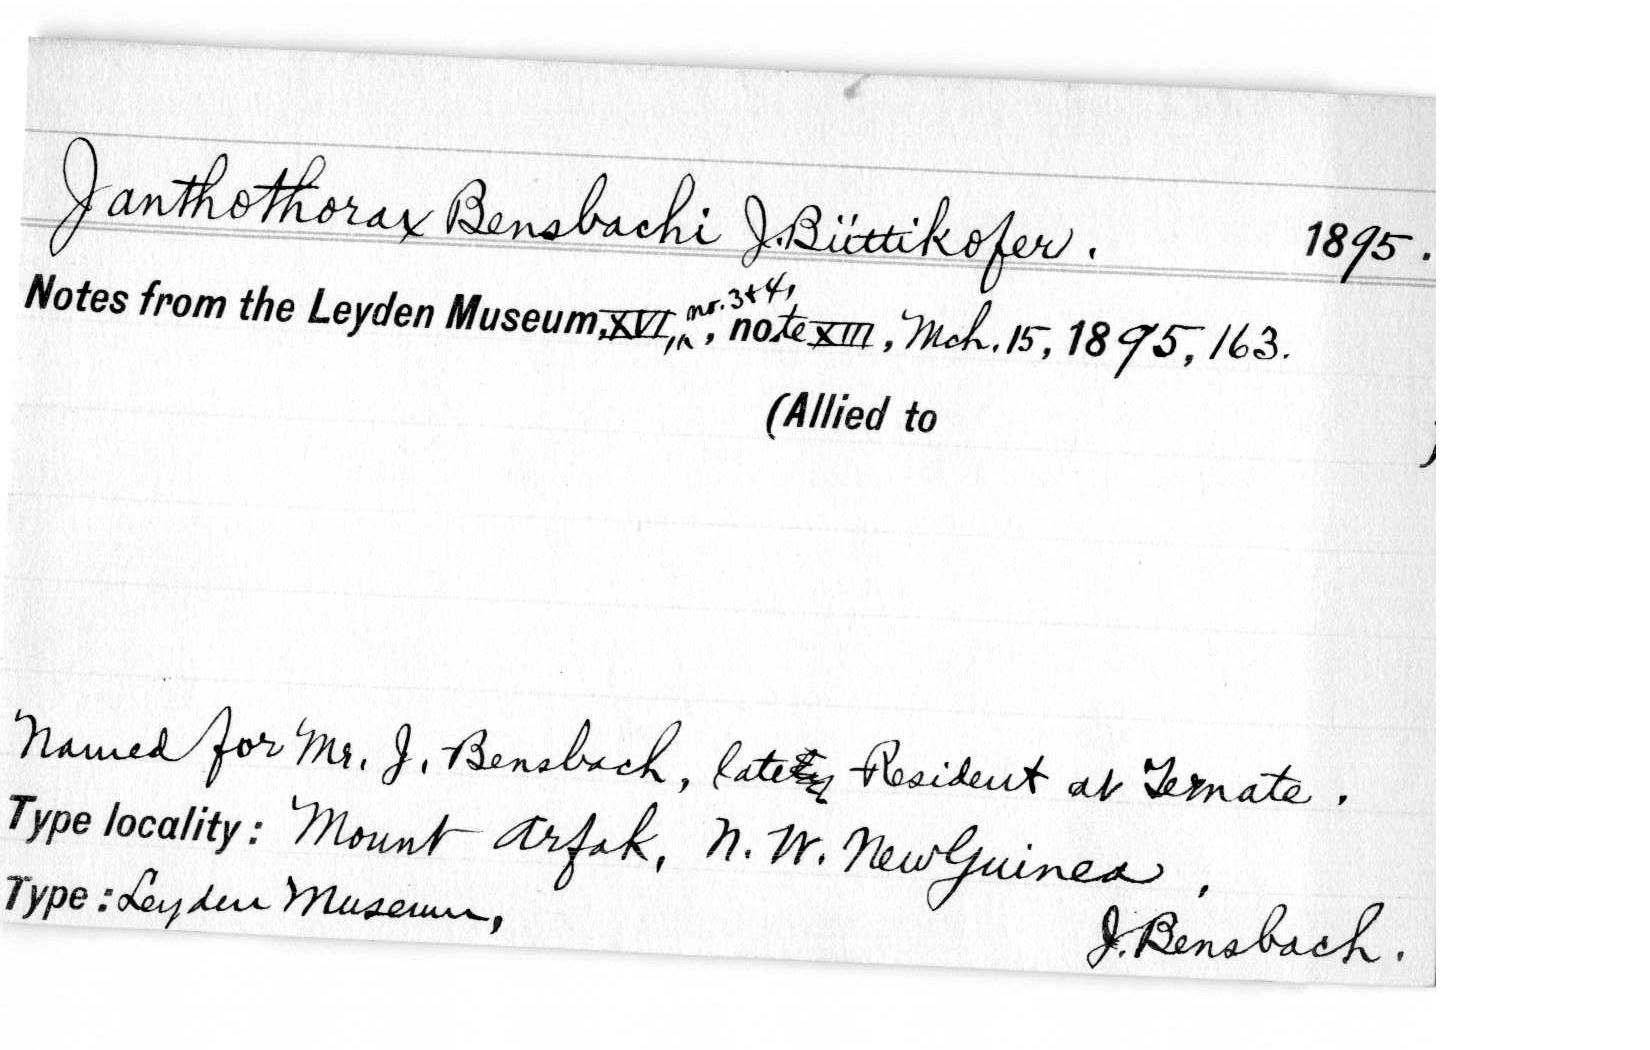 Janthothorax Bensbachi J. Büttikofer. 1895.
Notes from the Leyden Museum, XVI, no. 3 & 4, note XIII, Mch. 15, 1895, 163.
(Allied to )
Named for Mr. J. Bensbach, late Resident at Ternate.
Type locality: Mount Arfak, N. W. New Guinea,
Type: Leyden Museum,
J. Bensbach.